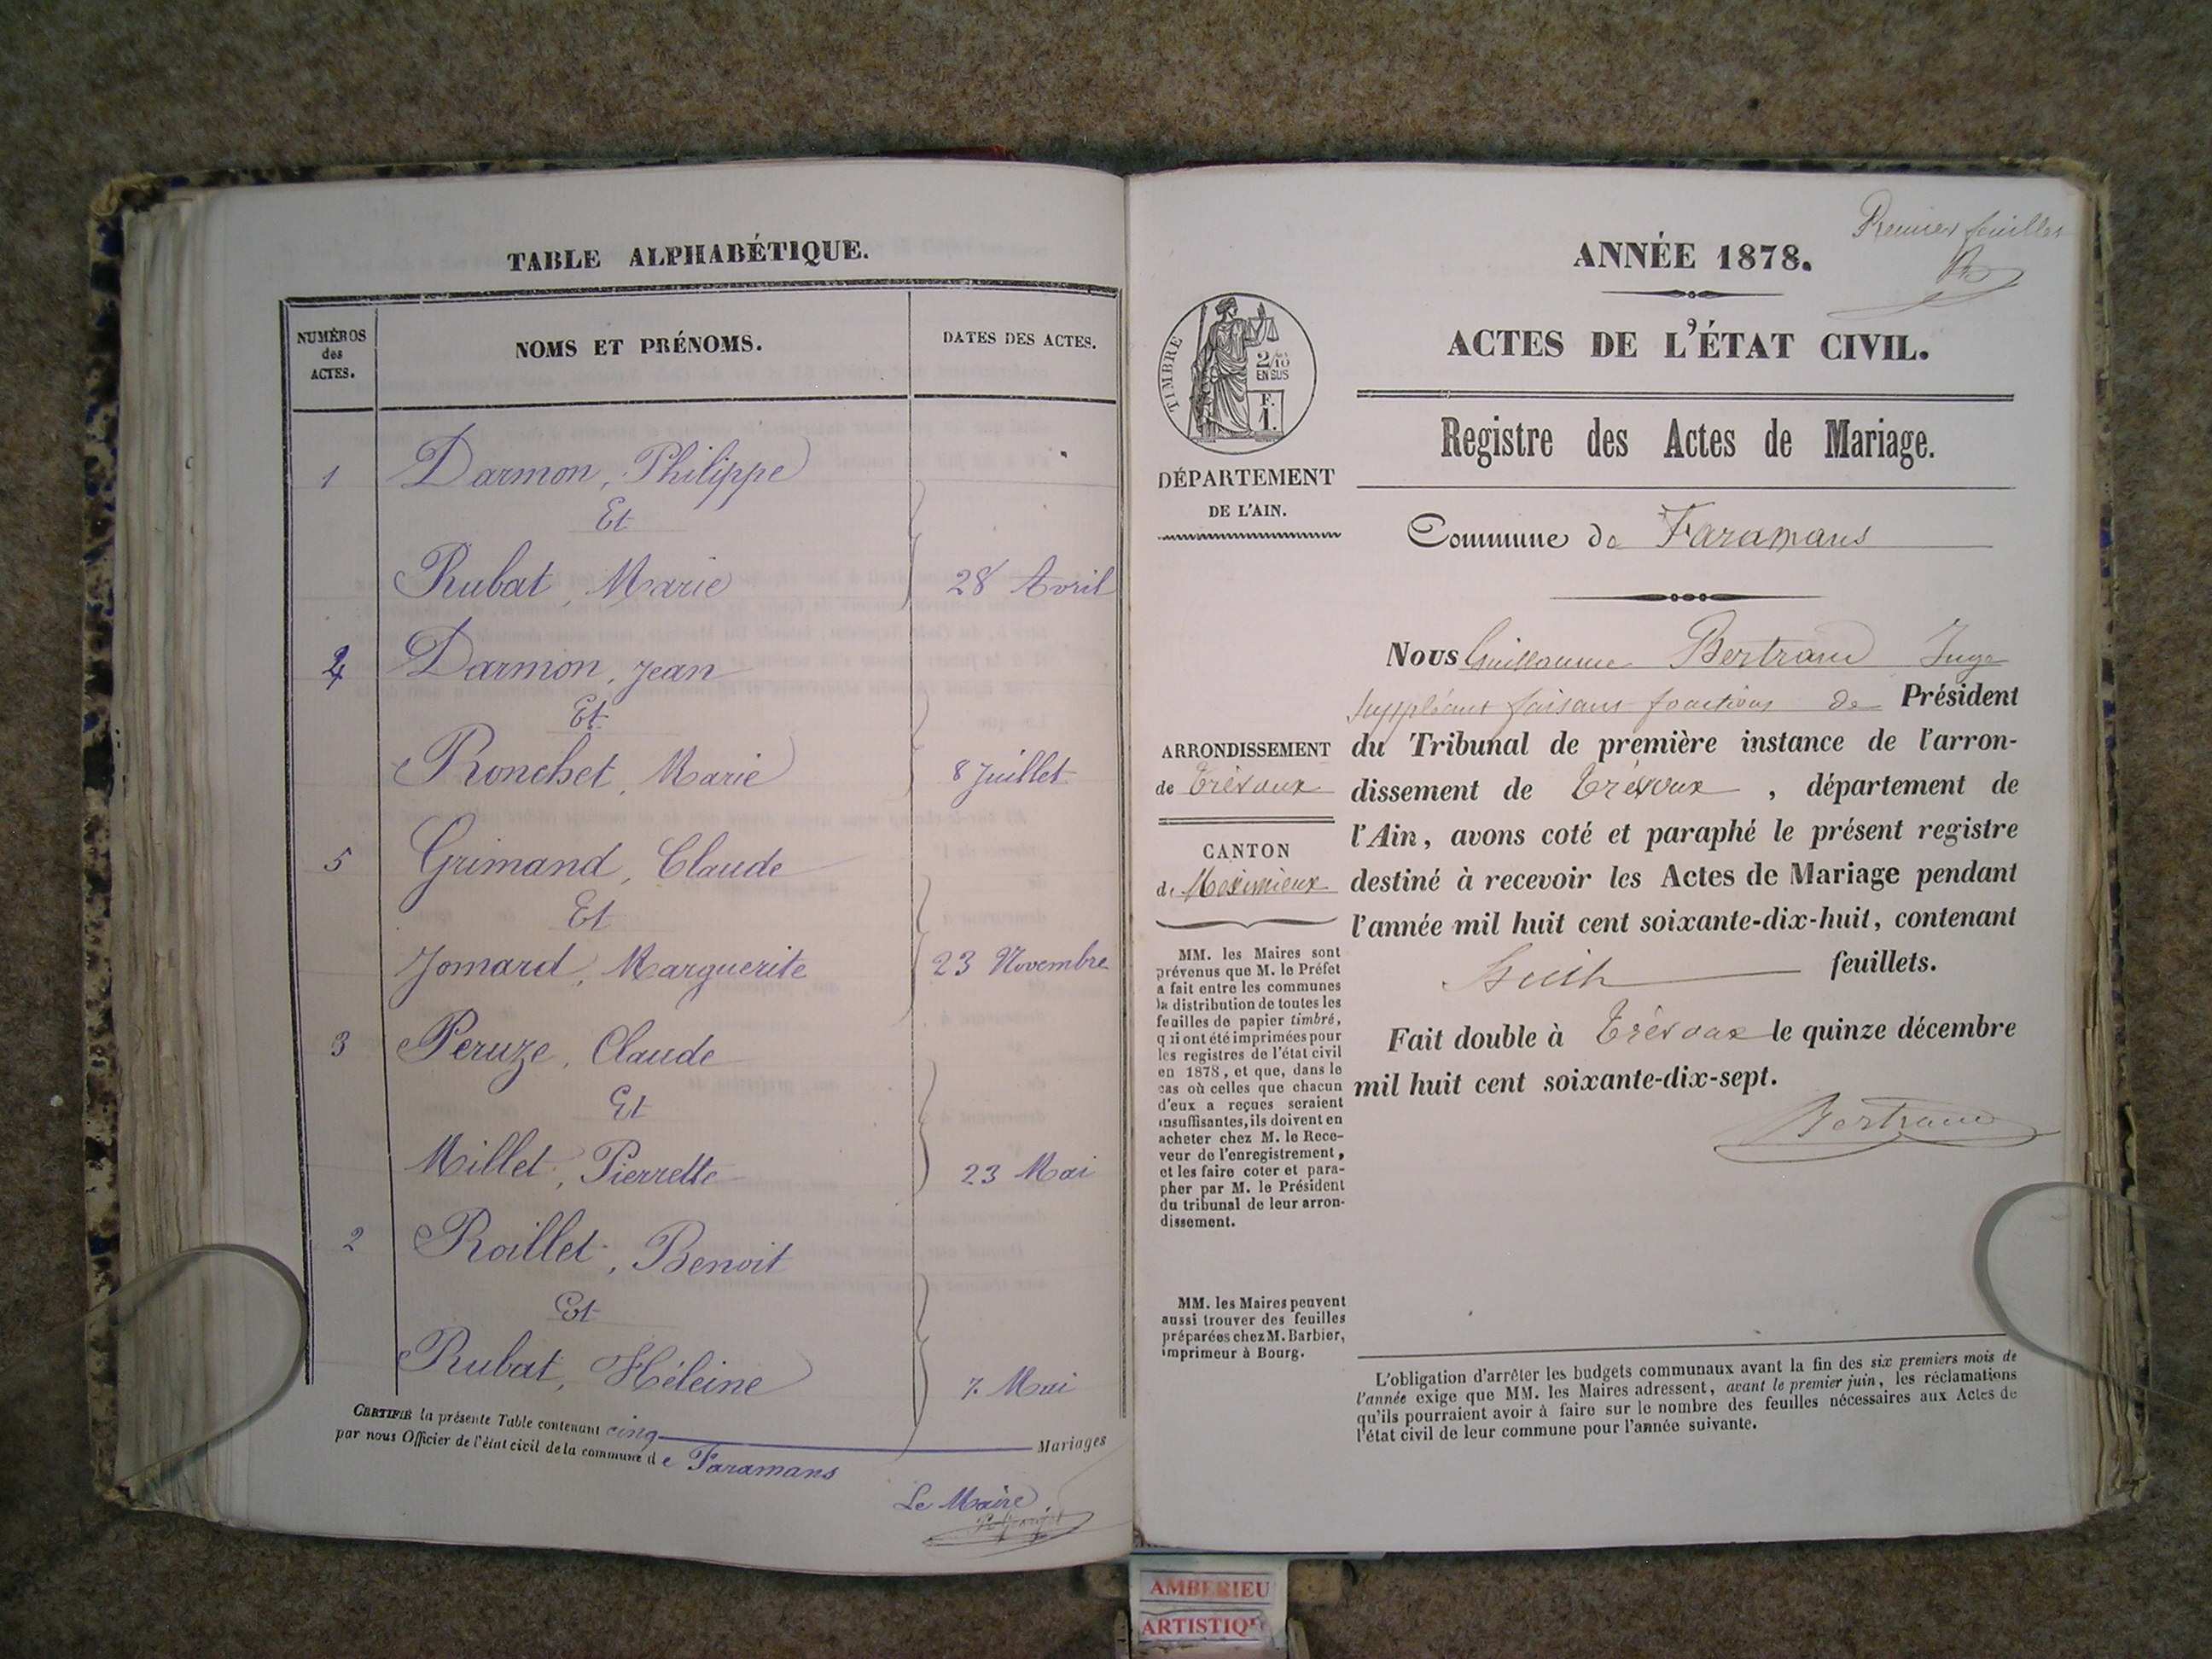 TABLE ALPHABÉTIQUE.
NUMÉROS
des
ACTES.
NOMS ET PRÉNOMS.
DATES DES ACTES.
1 Darmon, Philippe
Et
Rubat, Marie 28 Avril
4 Darmon, Jean
Et
Ronchet, Marie 8 Juillet
5 Grimand, Claude
Et
Jomard, Marguerite 23 Novembre
3 Peruze, Claude
Et
Millet, Pierrette 23 Mai
2 Roillet, Benoit
Et
Rubat, Héleine 7. Mai
CERTIFIÉ la présente Table contenant cinq Mariages
par nous Officier de l'état civil de la commune de Faramans
Le Maire
Premier feuillet
ANNÉE 1878.
ACTES DE L'ÉTAT CIVIL.
Registre des Actes de Mariage.
Commune de Faramans
TIMBRE
2/10
EN SUS
F.
1.
DÉPARTEMENT
DE L'AIN.
ARRONDISSEMENT
de Trévoux
CANTON
de Meximieux
MM. les Maires sont
prévenus que M. le Préfet
a fait entre les communes
la distribution de toutes les
feuilles de papier timbré,
qui ont été imprimées pour
les registres de l'état civil
en 1878, et que, dans le
cas où celles que chacun
d'eux a reçues seraient
insuffisantes, ils doivent en
acheter chez M. le Rece-
veur de l'enregistrement,
et les faire coter et para-
pher par M. le Président
du tribunal de leur arron-
dissement.
MM. les Maires peuvent
aussi trouver des feuilles
préparées chez M. Barbier,
imprimeur à Bourg.
Nous Guillaume Bertrand Juge
suppléant faisant fonctions de Président
du Tribunal de première instance de l'arron-
dissement de Trévoux, département de
l'Ain, avons coté et paraphé le présent registre
destiné à recevoir les Actes de Mariage pendant
l'année mil huit cent soixante-dix-huit, contenant
huit feuillets.
Fait double à Trévoux le quinze décembre
mil huit cent soixante-dix-sept.
Bertrand
L'obligation d'arrêter les budgets communaux avant la fin des six premiers mois de
l'année exige que MM. les Maires adressent, avant le premier juin, les réclamations
qu'ils pourraient avoir à faire sur le nombre des feuilles nécessaires aux Actes de
l'état civil de leur commune pour l'année suivante.
AMBERIEU
ARTISTIQU